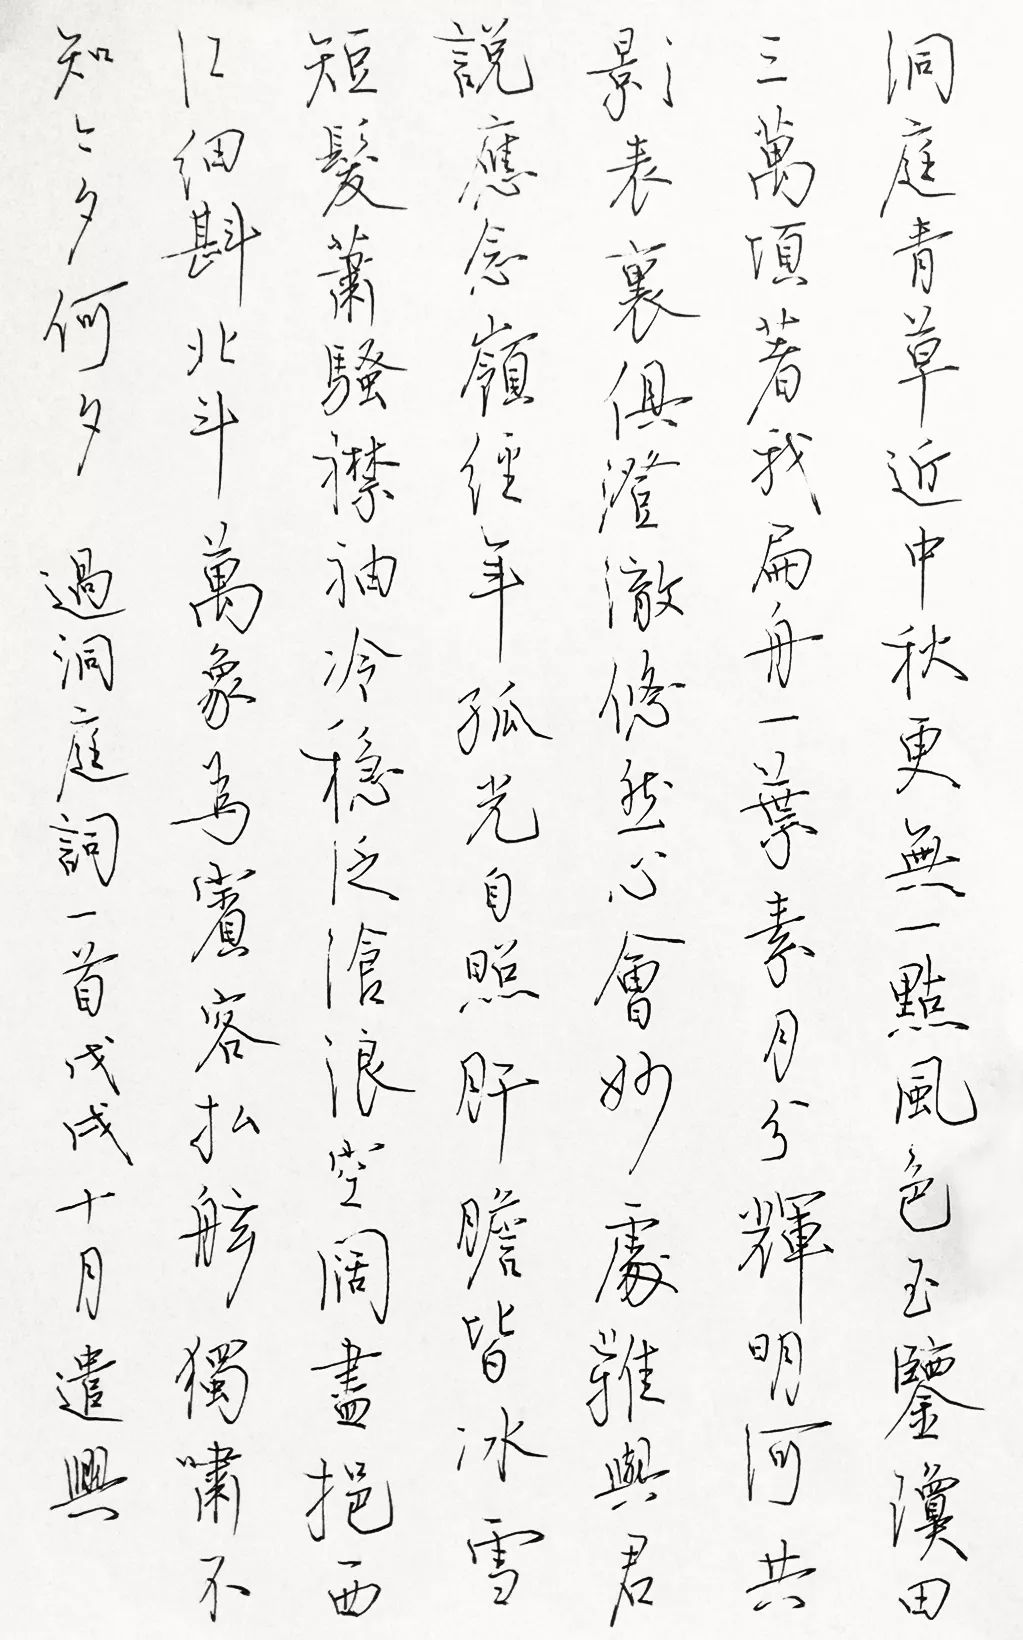 洞庭青草近中秋更無一點風色玉鑒瓊田
三萬頃著我扁舟一葉素月分輝明河共
影表裏俱澄澈悠然心會妙處難與君
說應念嶺經年孤光自照肝膽皆冰雪
短髮蕭騷襟袖冷穩泛滄浪空闊盡挹西
江細斟北斗萬象為賓客扣舷獨嘯不
知今夕何夕 過洞庭詞一首戊戌十月遣興